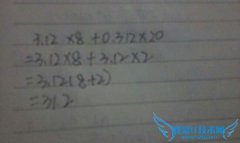 3.12×8+0.312×20
=3.12×8+3.12×2
=3.12(8+2)
=31.2